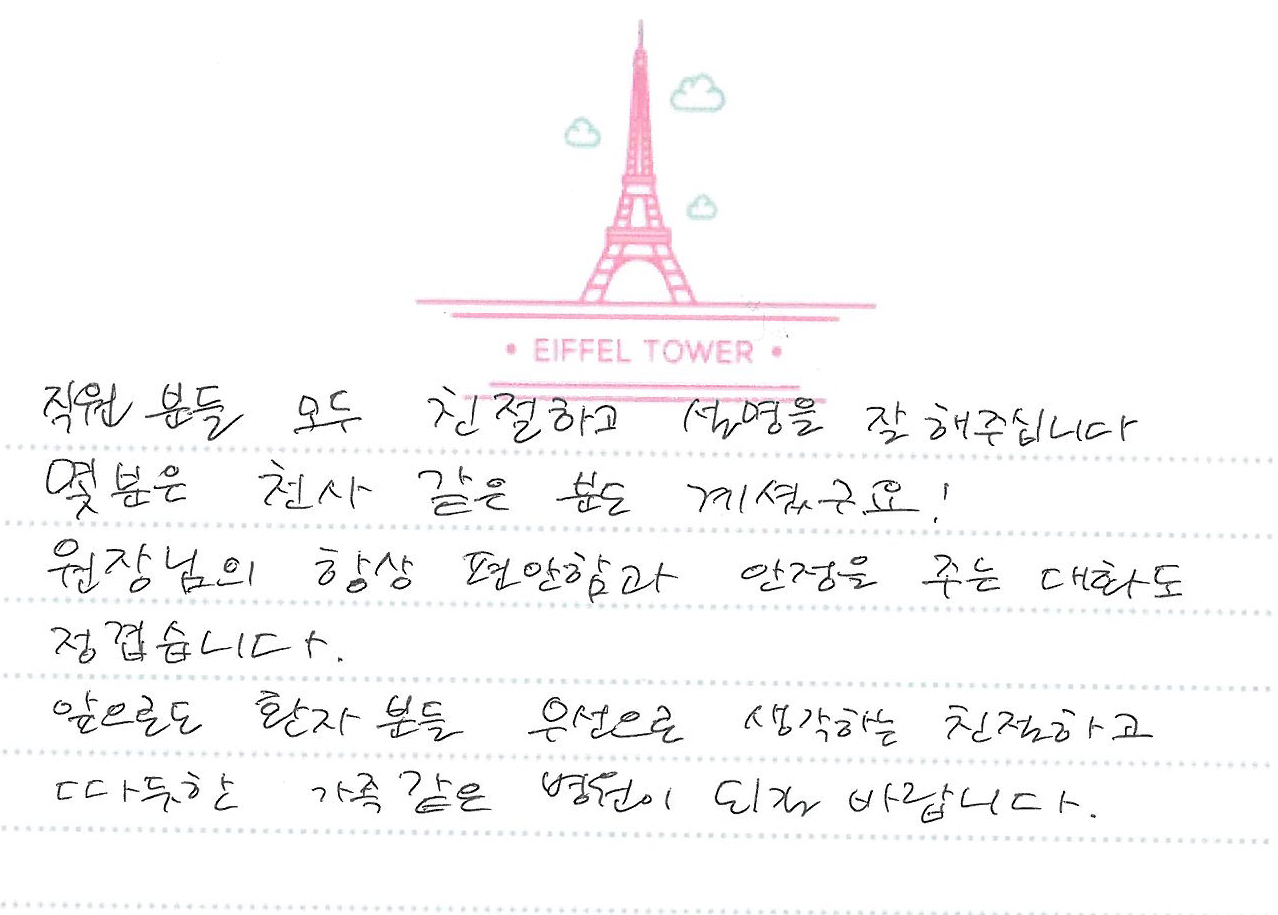 • EIFFEL TOWER •
직원분들 모두 친절하고 설명을 잘해주십니다
몇분은 천사 같은 분도 계셨구요!
원장님의 항상 편안함과 안정을 주는 대화도
정겹습니다.
앞으로도 환자분들 우선으로 생각하는 친절하고
따듯한 가족같은 병원이 되길 바랍니다.